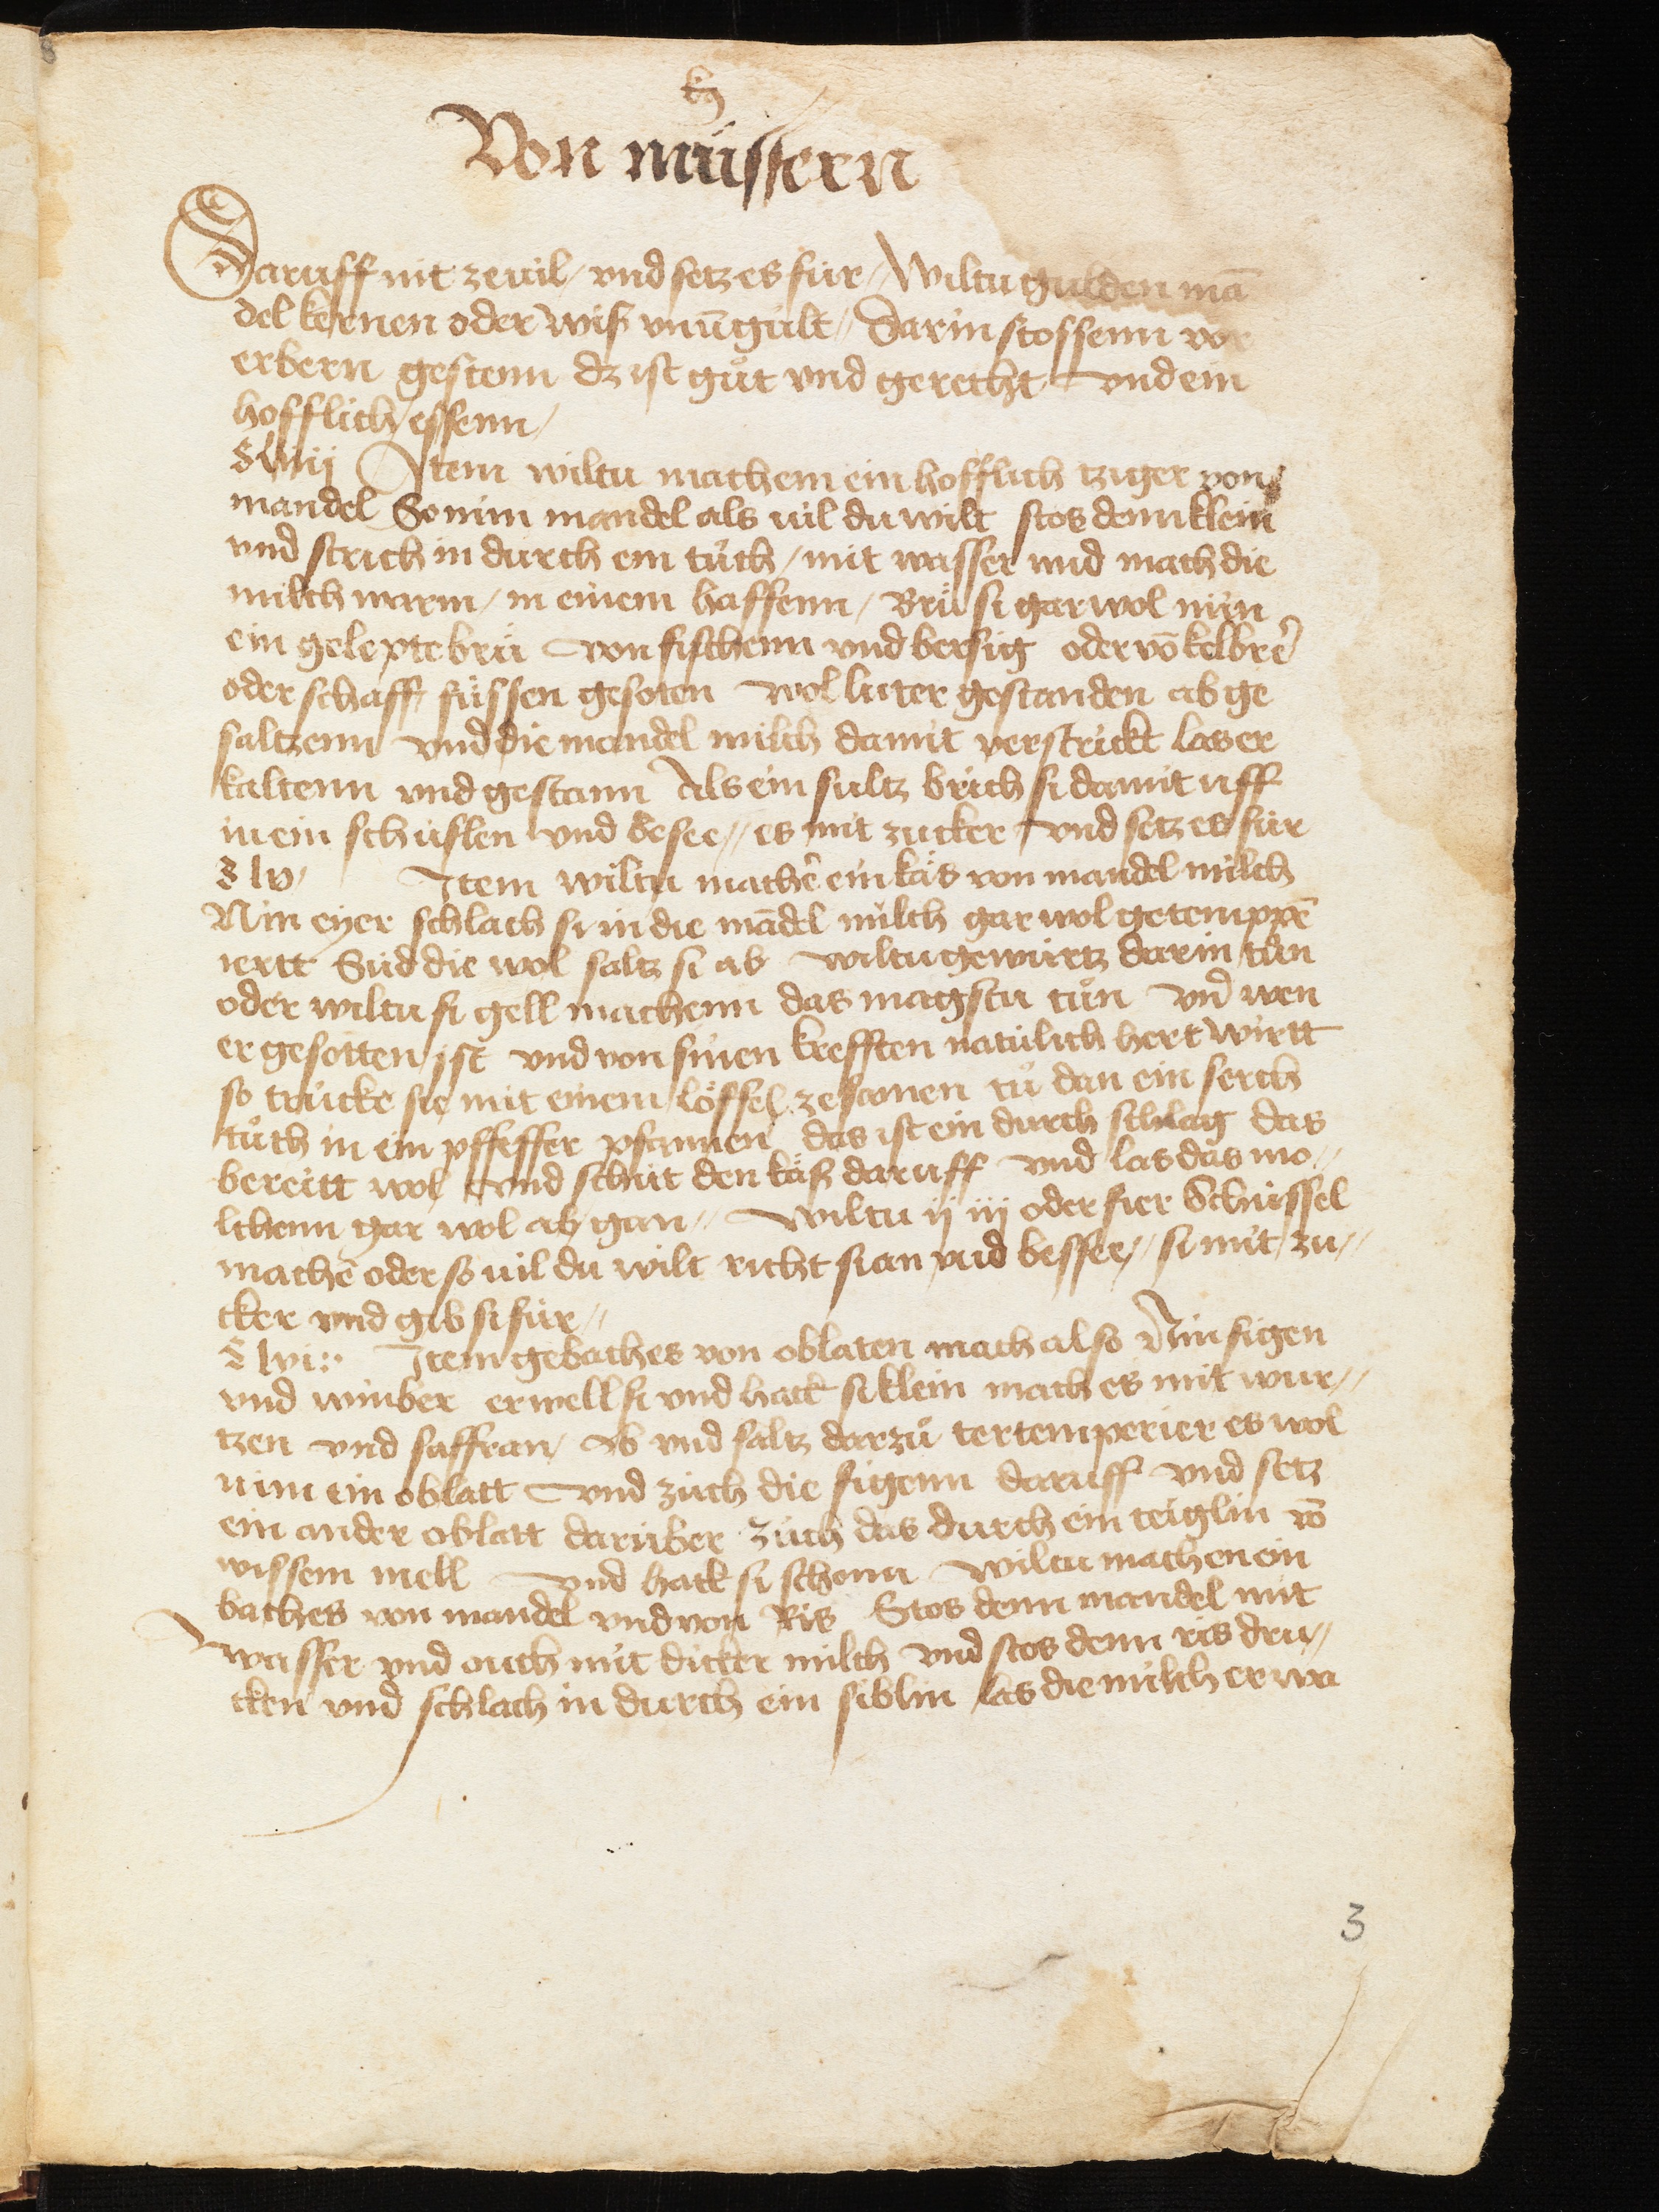 Von müssern
Daruff nit ze uil / vnd setz es für / Wiltu gulden mā
del kernen oder wiß vnūgült // Darin stossenn vor
erbern gestenn dz ist gůt vnd gerecht vnd ein
hofflich essenn /
Item wiltu machenn ein hofflich tziger von
mandel So nim mandel als uil du wilt stos denn klein
vnd strich in durch ein tůch / mit wasser vnd mach die
milch warm / in einem haffenn / Brü si gar wol nün
ein gelepte brü von fischenn vnd bersig oder vō kelbrē
oder schaff füssen gesoten wol luter gestanden ab ge
saltzenn vnd die mandel milch damit verstrickt las er
kaltenn vnd gestann Als ein sultz brich si damit uff
in ein schüslen vnd besee // es mit zucker vnd setz es für
§ lv / Item wiltu machē ein käs von mandel milch
Nim eyer schlach si in die mādel milch gar wol getemperē
iertt Süd die wol saltz si ab wiltu gewürtz darin tůn
oder wiltu si gell machenn das magstu tůn vnd wen
er gesotten ist vnd von sinen krefften natülich hert wirtt
so trücke sie mit einem löffel zesamen tů dan ein serch
tůch in ein pffeffer pfannen das ist ein durch schlag das
bereitt wol vnd schüt den käß daruff vnd las das mo //
lchenn gar wol ab gan // Wiltu ij iij oder fier Schüssel
machē oder so uil du wilt richt si an vnd bessee // si mit zu //
cker vnd gib si für //
§ lvi : Item gebaches von oblaten mach also Nim figen
vnd winber erwell si vnd hack si klein mach es mit wur //
tzen vnd saffran / vnd saltz darzů tertemperier es wol
nim ein oblatt vnd züch die figenn daruff vnd setz
ein ander oblatt darüber züch das durch ein teiglin vō
wissem mell vnd back si schonn Wiltu machen ein
baches von mandel vnd von Ris Stos denn mandel mit
wasser vnd ouch mit dicker milch vnd stos denn ris dru //
cken vnd schlach in durch ein siblin las die milch er wa
3